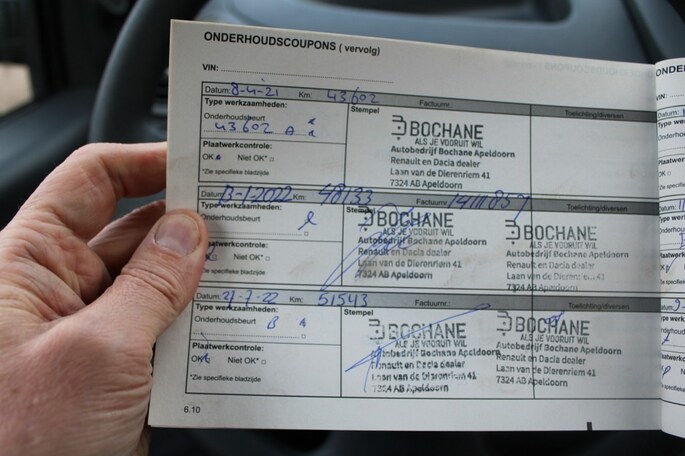 ONDERHOUDSCOUPONS ( vervolg)
ONDE
VIN:
VIN:
Datum: 8-4-21 Km: 43602 Factuurnr.: Toelichting/diversen
Type werkzaamheden: Stempel
Onderhoudsbeurt
43602 A
BOCHANE
ALS JE VOORUIT WIL
Autobedrijf Bochane Apeldoorn
Renault en Dacia dealer
Laan van de Dierenriem 41
7324 AB Apeldoorn
Plaatwerkcontrole:
OK Niet OK*
*Zie specifieke bladzijde
Datum: 13-1-2022 Km: 48133 Factuurnr.: Toelichting/diversen
Type werkzaamheden: Stempel
Onderhoudsbeurt
BOCHANE
ALS JE VOORUIT WIL
Autobedrijf Bochane Apeldoorn
Renault en Dacia dealer
Laan van de Dierenriem 41
7324 AB Apeldoorn
BOCHANE
ALS JE VOORUIT WIL
Autobedrijf Bochane Apeldoorn
Renault en Dacia dealer
Laan van de Dierenriem 41
7324 AB Apeldoorn
Plaatwerkcontrole:
OK Niet OK*
*Zie specifieke bladzijde
Datum: 27-7-22 Km: 51543 Factuurnr.: Toelichting/diversen
Type werkzaamheden: Stempel
Onderhoudsbeurt B
BOCHANE
ALS JE VOORUIT WIL
Autobedrijf Bochane Apeldoorn
Renault en Dacia dealer
Laan van de Dierenriem 41
7324 AB Apeldoorn
BOCHANE
ALS JE VOORUIT WIL
Autobedrijf Bochane Apeldoorn
Renault en Dacia dealer
Laan van de Dierenriem 41
7324 AB Apeldoorn
Plaatwerkcontrole:
OK Niet OK*
*Zie specifieke bladzijde
6.10